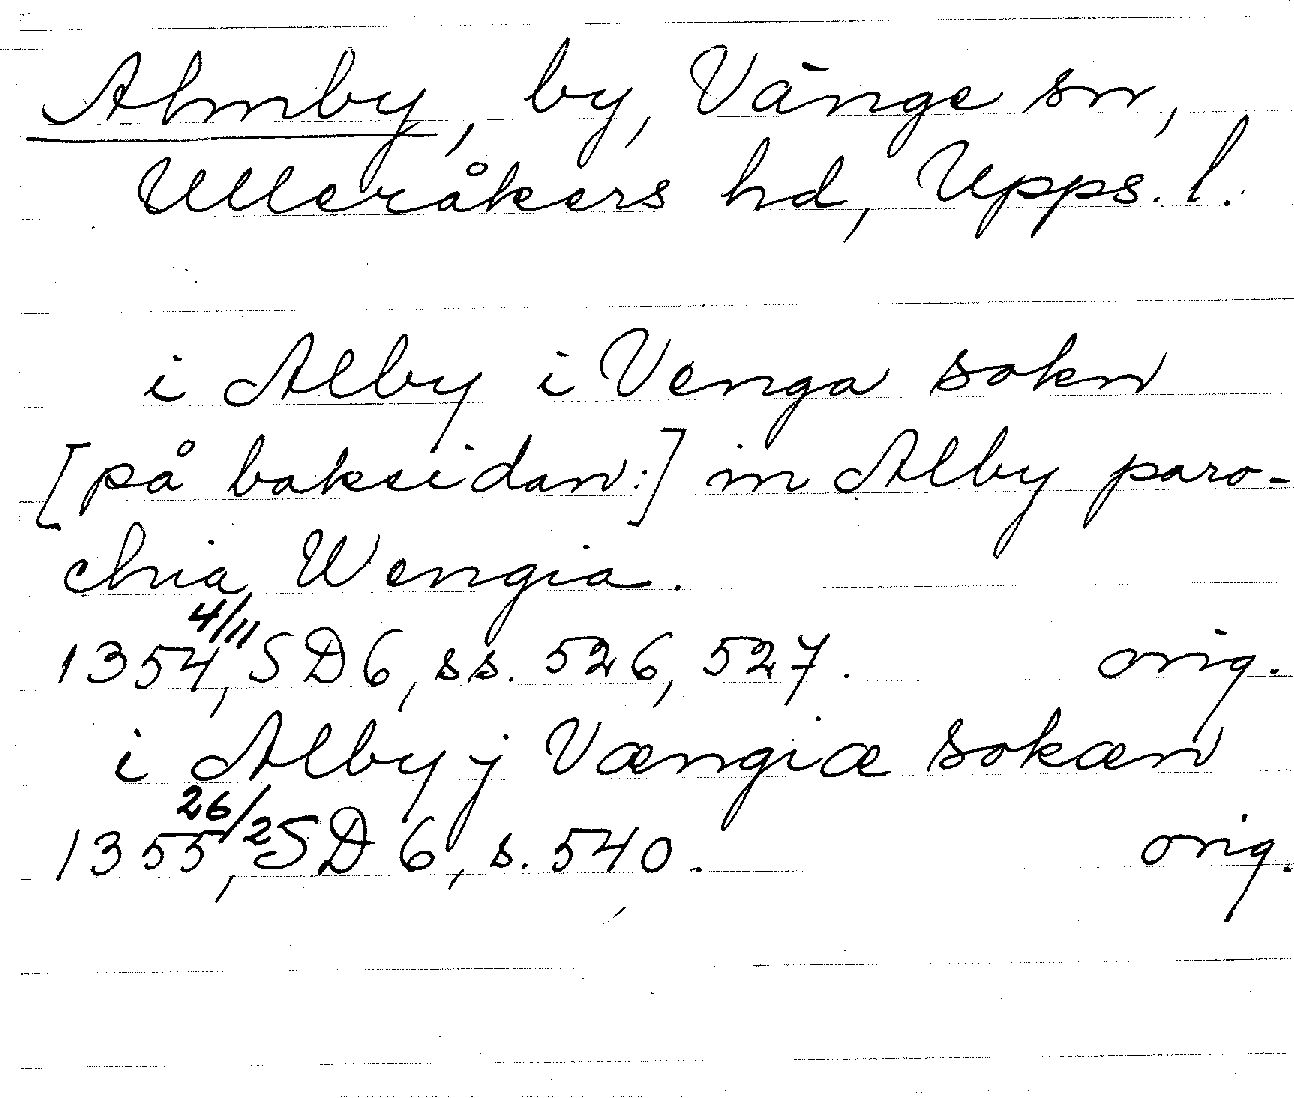 Almby, by, Vänge sn,
Ulleråkers hd, Upps. l.
i Alby i Venga sokn
[på baksidan:] in Alby paro-
chia Wengia.
1354 4/11, SD 6, ss. 526, 527. orig.
i Alby j Vængiæ sokæn
1355 26/2, SD 6, s. 540. orig.